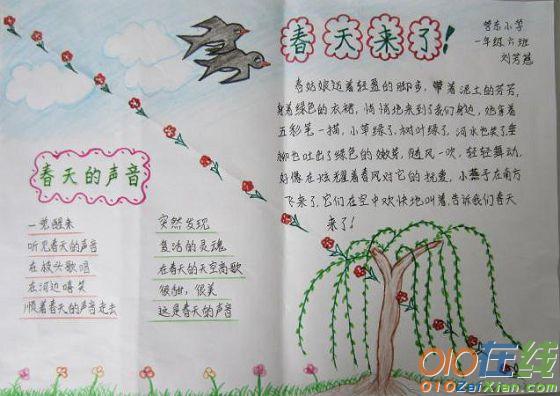 春天来了!
管东小学
一年级六班
刘芳冠
春姑娘迈着轻盈的脚步,带着泥土的芳芳,
身着绿色的衣裙,悄悄地来到了我们身边,她拿着
五彩笔一描,小草绿了,树叶绿了,河水也笑了,垂
柳也吐出了绿色的嫩芽,随风一吹,轻轻舞动,
好像在炫耀着春风对它的抚爱,小燕子在南方
飞来了,它们在空中欢快地叫着,告诉我们春天
来了!
春天的声音
一觉醒来
听见春天的声音
在枝头歌唱
在河边嘻笑
顺着春天的声音走去
突然发现
复活的灵魂
在春天的天空高歌
很甜,很美
这是春天的声音
010在线
010ZaiXian.com